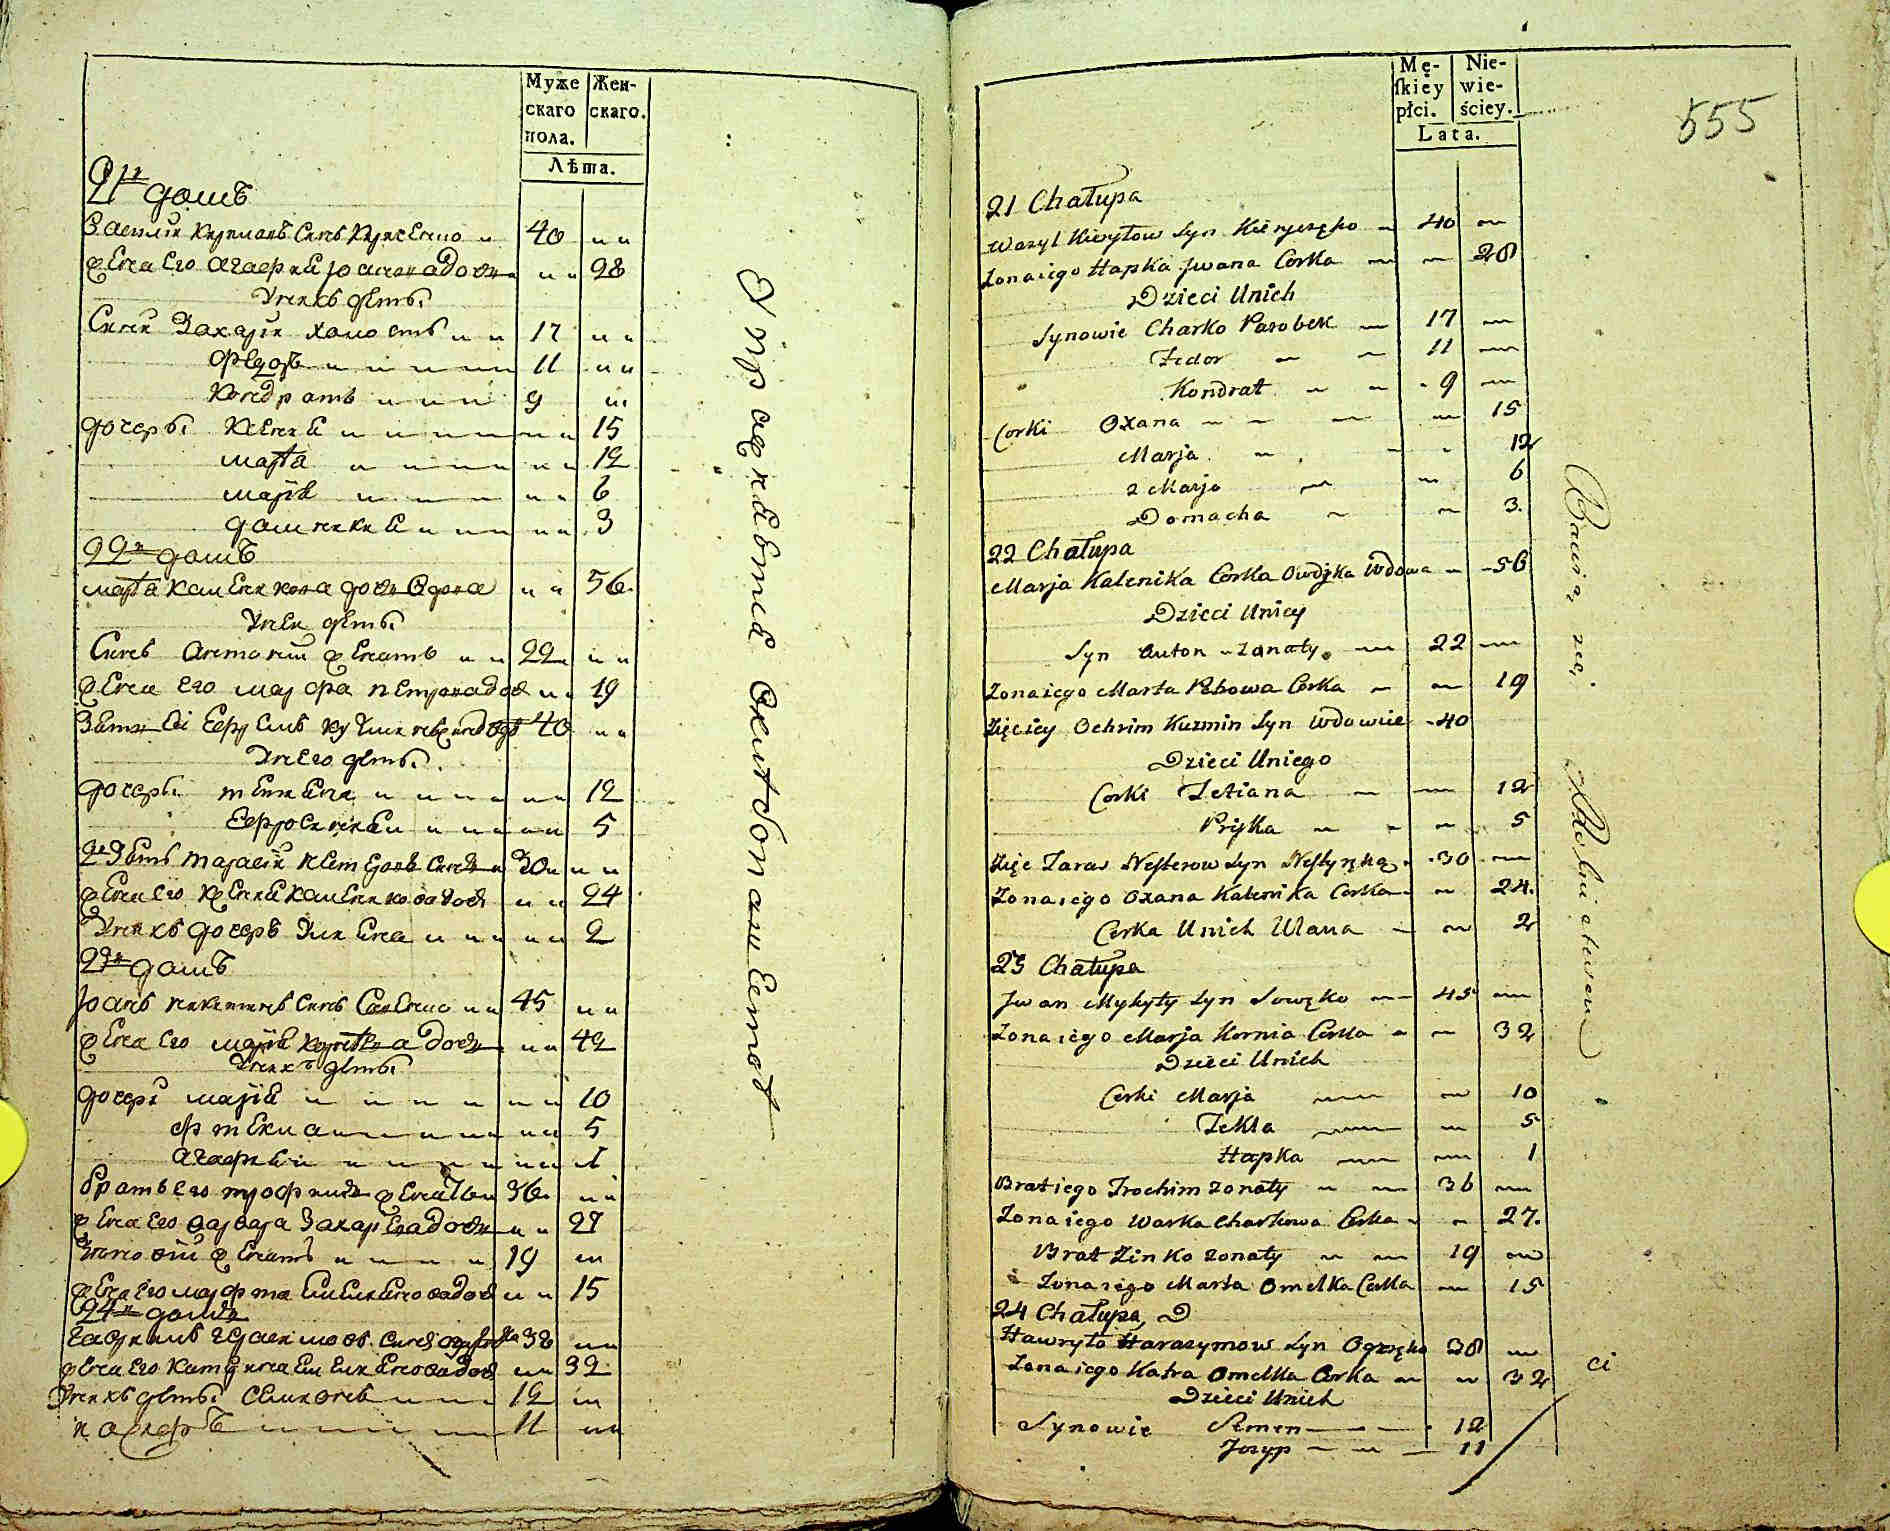 Муже
скаго
пола.
Жен-
скаго.
Лѣта.
21й домъ
Василій Кириловъ Сынъ 40
жена его Агафия Иванова дочь 28
У нихъ дѣты
Сыны Захарія холостъ 17
Федоръ 11
Кондратъ 9
дочеры Ксения 15
марта 12
марія 6
домникия 3
22й домъ
марта Каленикова дочь вдова 56
У ней дѣты
Сынъ Антоній женатъ 22
жена его марфа Петрова доч 19
40
У него дѣты
дочеры 12
Ефросиния 5
2й Зять Тарасій Нестеровъ Сынъ 30
жена его Ксения Каленикова доч 24
У нихъ дочерь Улиена 2
23й домъ
Іоанъ никитинъ Сынъ 45
жена его марія дочь 42
У нихъ дѣты
дочеры марія 10
фтекла 5
Агафия 1
братъ его трофимъ женатъ 36
жена его варвара Захариева дочь 27
Зиновій женатъ 19
жена его марфта Емелиенова доч 15
24й домъ
38
жена его Катерина Емелиенова доч 32
У нихъ дѣты Симионъ 12
11
Mę-
ſkiey
płci.
Nie-
wie-
ściey.
Lata.
555
21 Chałupa
Wasyl Kieryłow Syn 40
Zona iego Hapka Jwana Corka 28
Dzieci Unich
Synowie Charko Parobek 17
Fedor 11
Kondrat 9
Corki Oxana 15
Marja 12
2 Marja 6
Domacha 3
22 Chałupa
Marja Kalenika Corka Wdowa 56
Dzieci Unicy
Syn Anton Zonaty 22
Zona iego Marta Corka 19
Zięć iey Ochrim Kuzmin Syn Wdowiec 40
Dzieci Uniego
Corki Tetiana 12
Pryska 5
Zięć Taras Nesterow Syn 30
Zona iego Oxana Kalenika Corka 24
Corka Unich Ulana 2
23 Chałupa
Jwan Mykyty Syn 45
Zona iego Marja Kornia Corka 32
Dzieci Unich
Corki Marja 10
Tekla 5
Hapka 1
Brat iego Trochim Zonaty 36
Zona iego Warka Charkowa Corka 27
Brat Zinko Zonaty 19
Zona iego Marta Omelka Corka 15
24 Chałupa, D
Hawryło Harasymow Syn 38
Zona iego Katra Omelka Corka 32
Dzieci Unich
Synowie Semen 12
Jozyp 11
ci